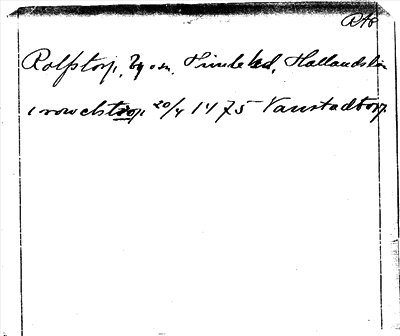 RAp
Rolfstorp, By o sn, Himle hd, Hallands län
i rowelstrop 20/4 1475 Vanstadtorp